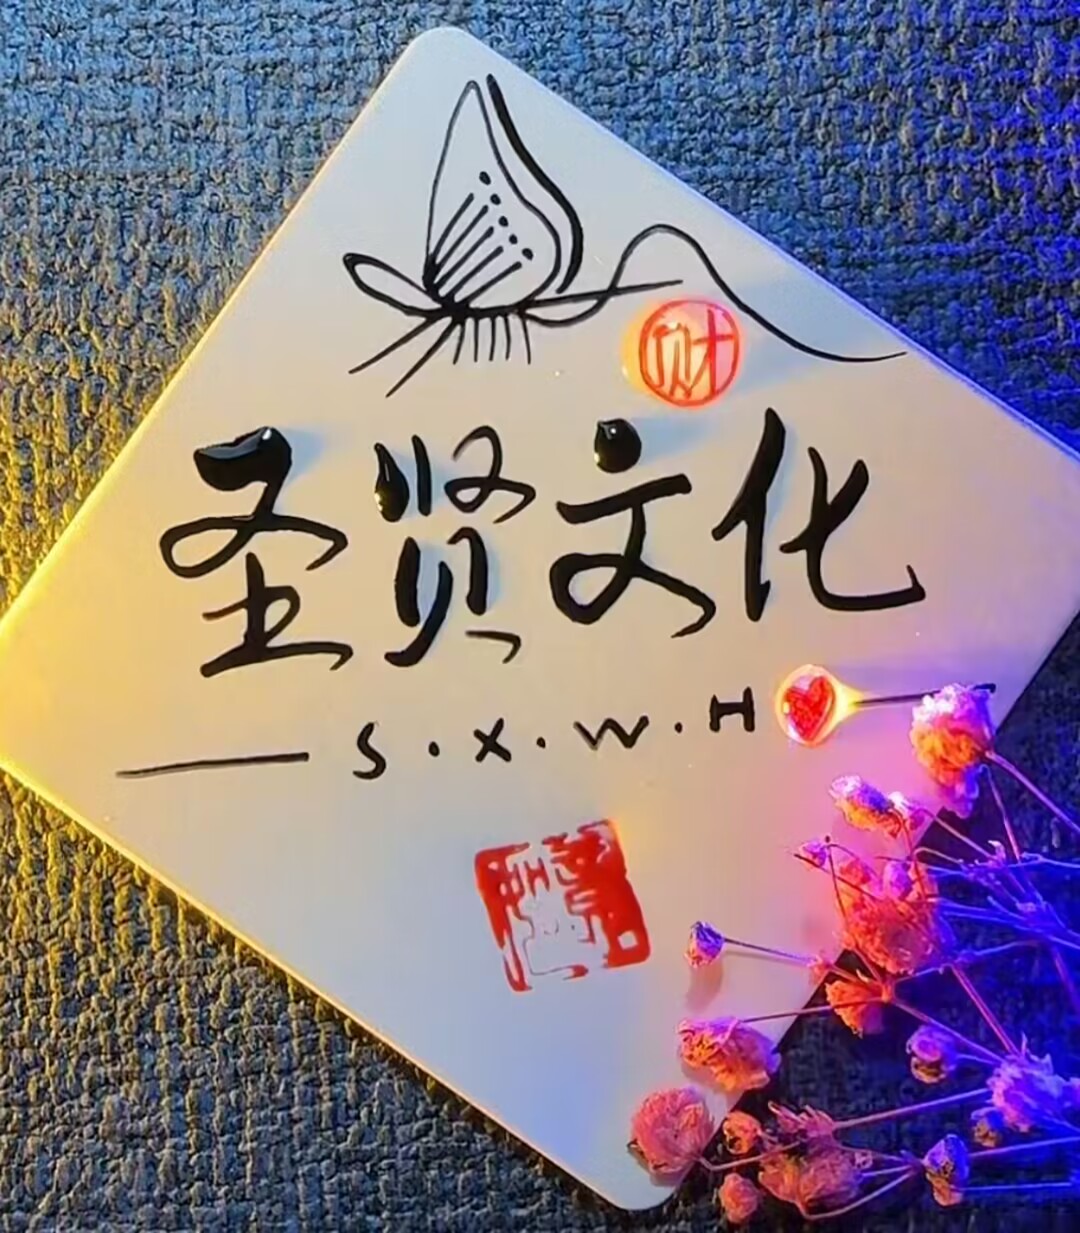 财
圣贤文化
S.X.W.H